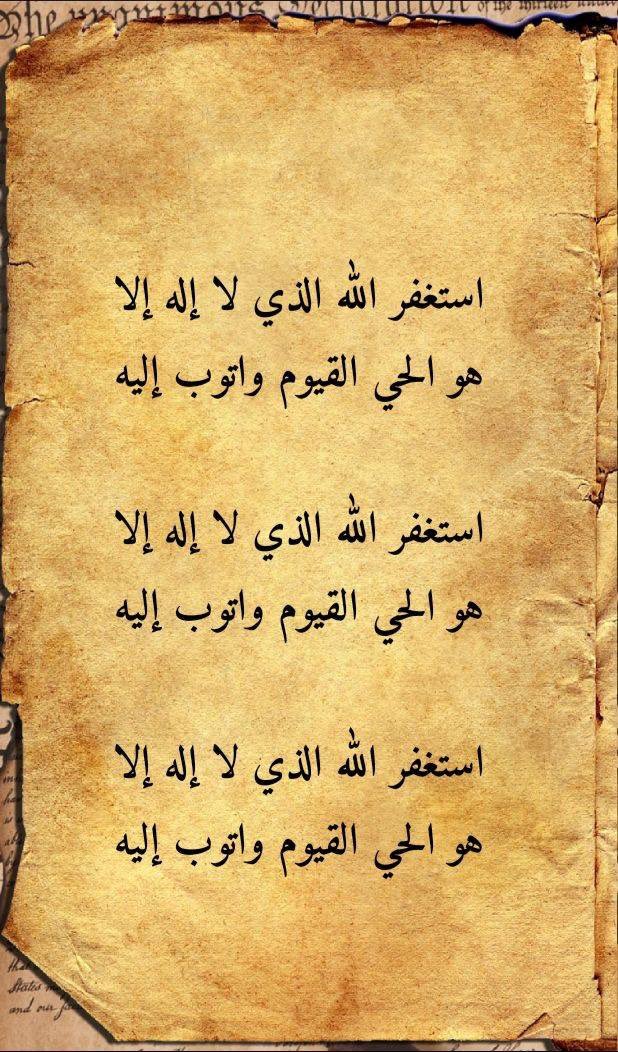 The unanimous Declaration of the thirteen united
استغفر الله الذي لا إله إلا
هو الحي القيوم واتوب إليه
استغفر الله الذي لا إله إلا
هو الحي القيوم واتوب إليه
استغفر الله الذي لا إله إلا
هو الحي القيوم واتوب إليه
that
States
and our